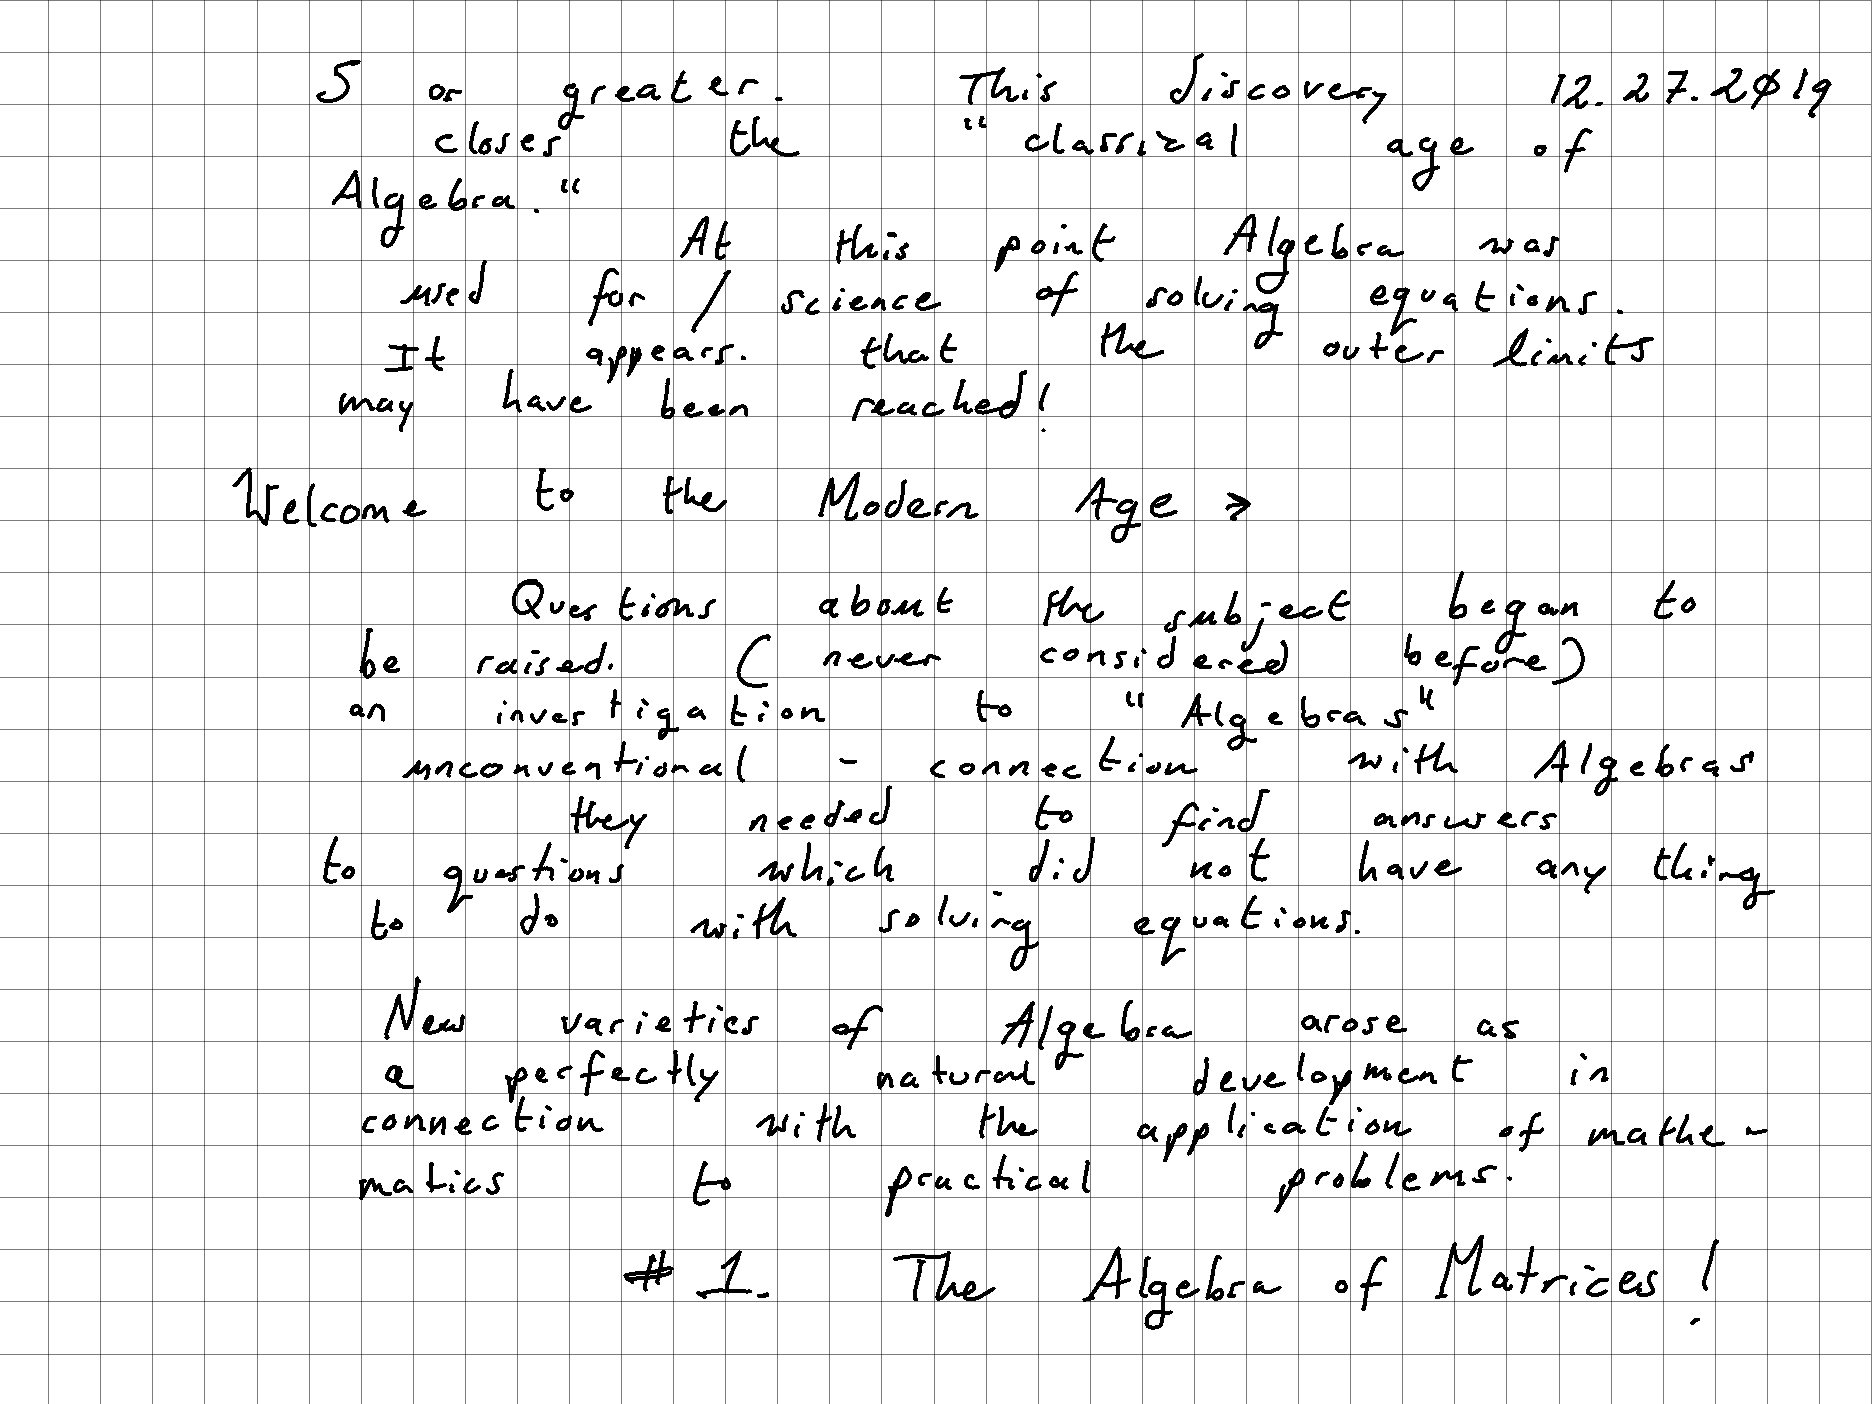 5 or greater. This discovery 12.27.2019
closes the "classical age of
Algebra."
At this point Algebra was
used for / science of solving equations.
It appears. that the outer limits
may have been reached!
Welcome to the Modern Age >
Questions about the subject began to
be raised. (never considered before)
an investigation to "Algebras"
unconventional - connection with Algebras
they needed to find answers
to questions which did not have any thing
to do with solving equations.
New varieties of Algebra arose as
a perfectly natural development in
connection with the application of mathe-
matics to practical problems.
#1. The Algebra of Matrices!